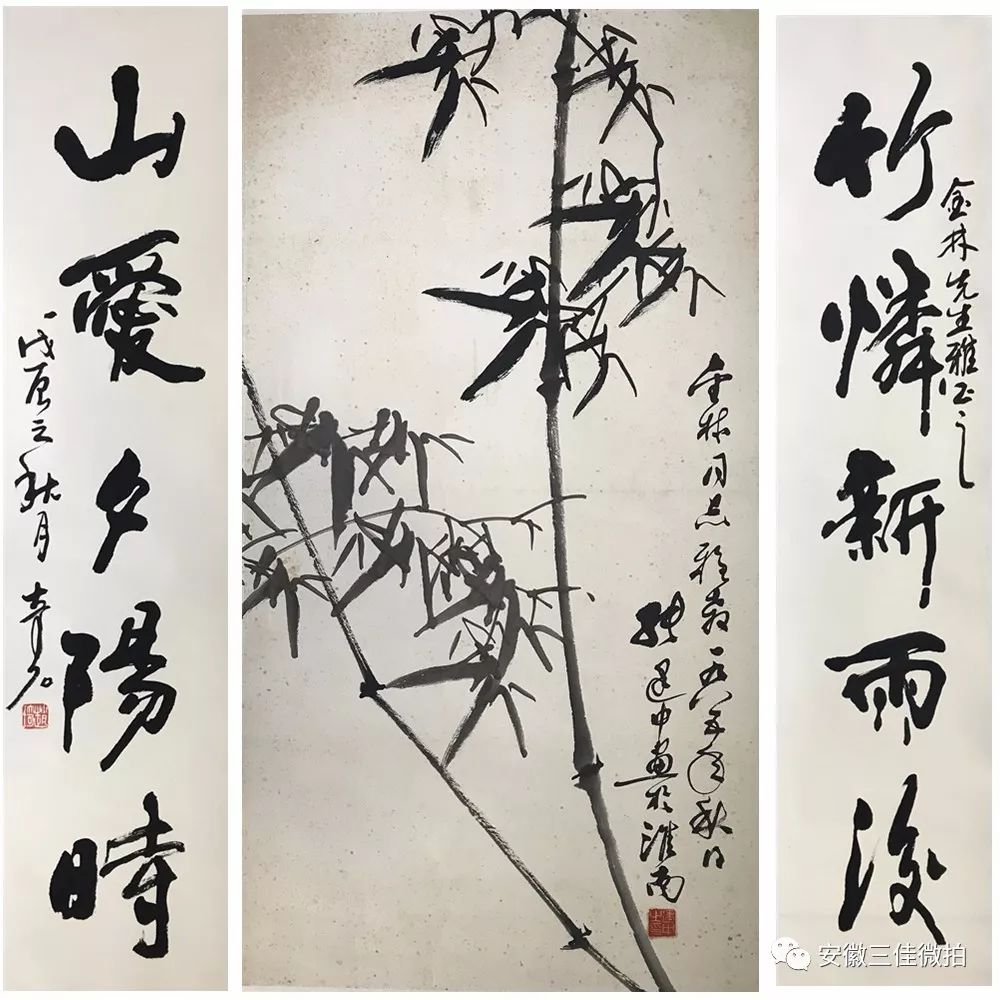 竹憐新雨後
金林先生雅正之
金林同志雅教 一九八五年秋日
建中畫於淮南
山愛夕陽時
戊寅之秋月
安徽三佳微拍